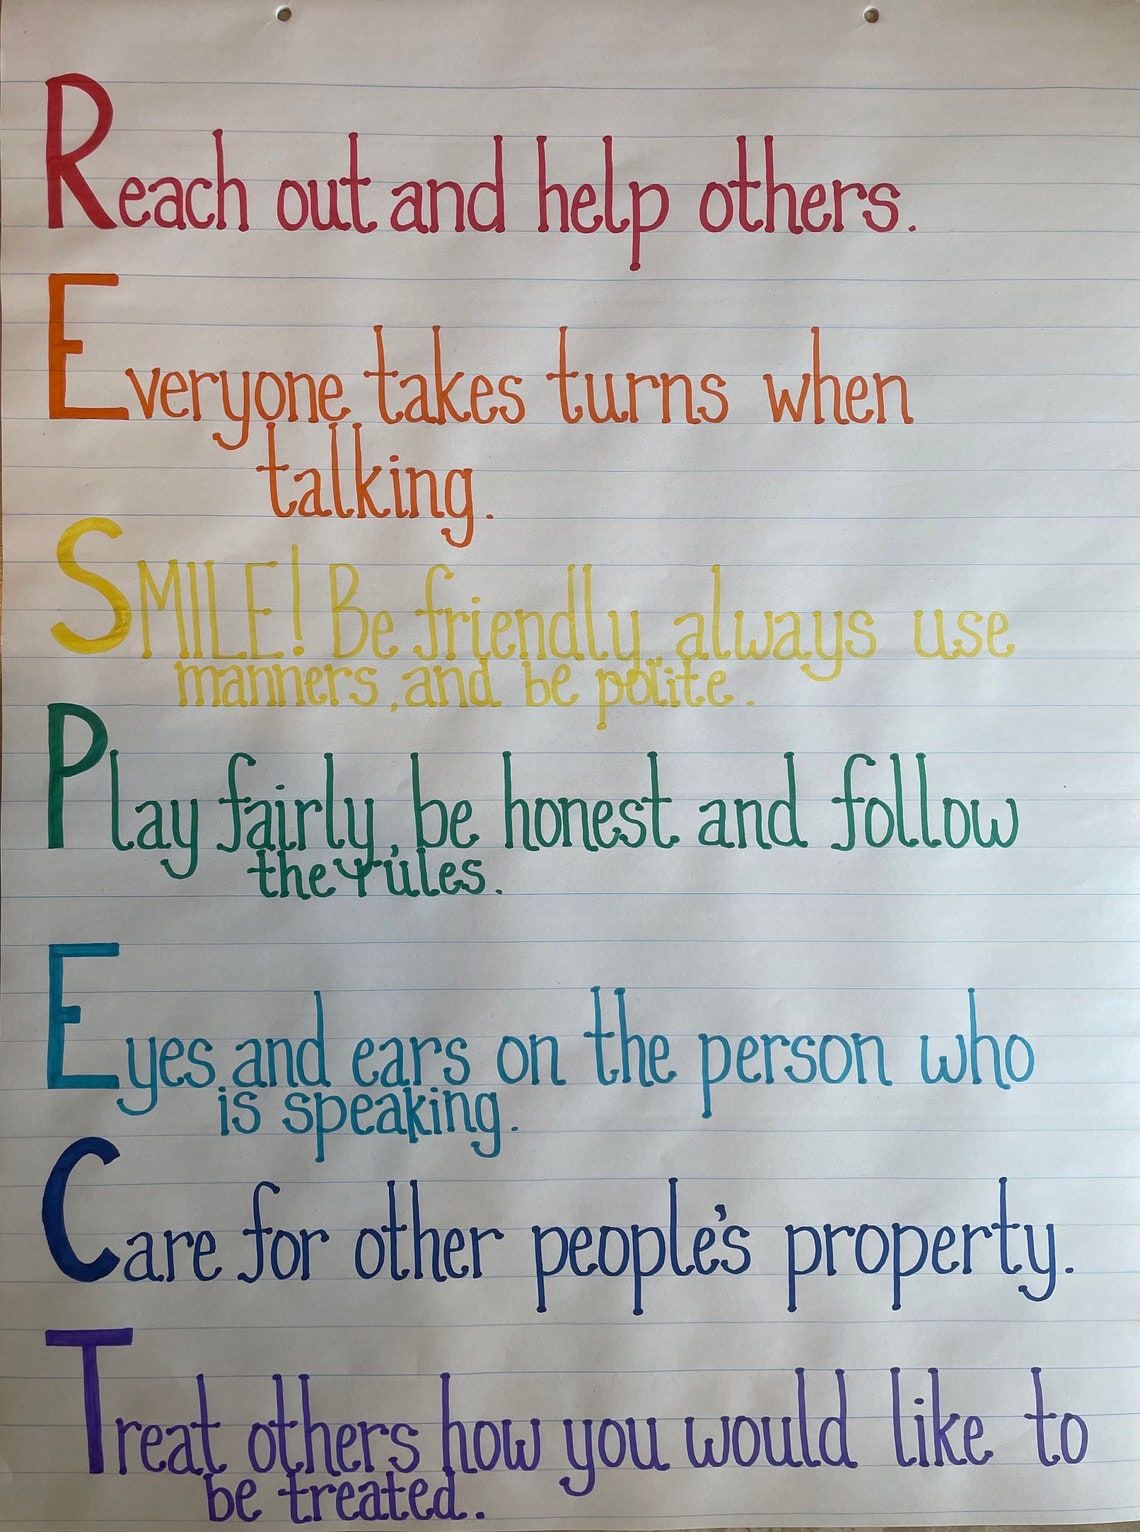 Reach out and help others.
Everyone takes turns when
talking.
SMILE! Be friendly, always use
manners, and be polite.
Play fairly, be honest and follow
the rules.
Eyes and ears on the person who
is speaking.
Care for other people's property.
Treat others how you would like to
be treated.